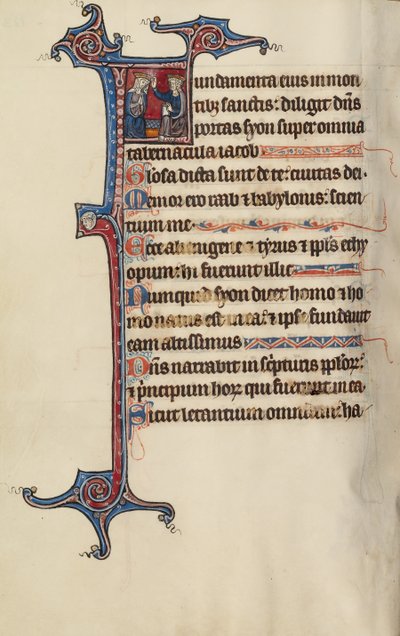 Fundamenta eius in mon
tibȝ sanctis: diligit dn̄s
portas syon super omnia
tabernacula iacob
Glosa dicta sunt de te: ciuitas dei.
Memor ero raab & babylonis: scien
tium me.
Ecce alienigene & tyrus & pp̄ls ethy
opium: hi fuerunt illic
Numquid syon dicet homo & ho
mo natus est in ea: & ipse fundauit
eam altissimus
Dn̄s narrabit in sc̄pturis pp̄lor̄:
& p̄ncipum hor̄ qui fuerunt in ea.
Sicut letantium omnium: ha